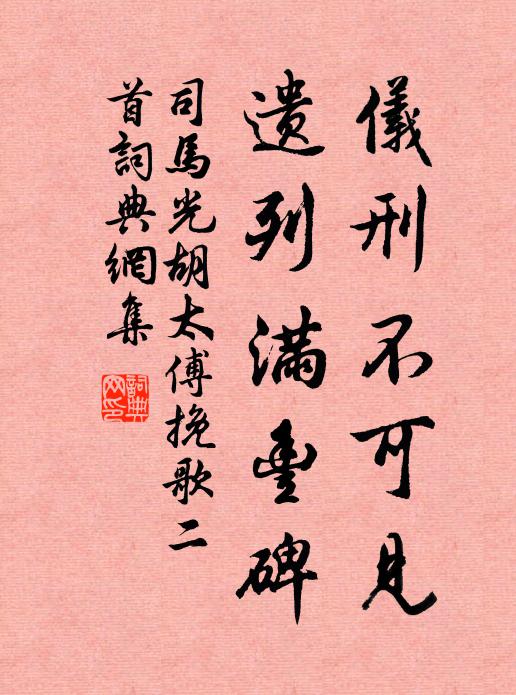 儀刑不可見
遺列滿豊碑
司馬光胡太傅挽歌二
首詞典網集
詞典网印